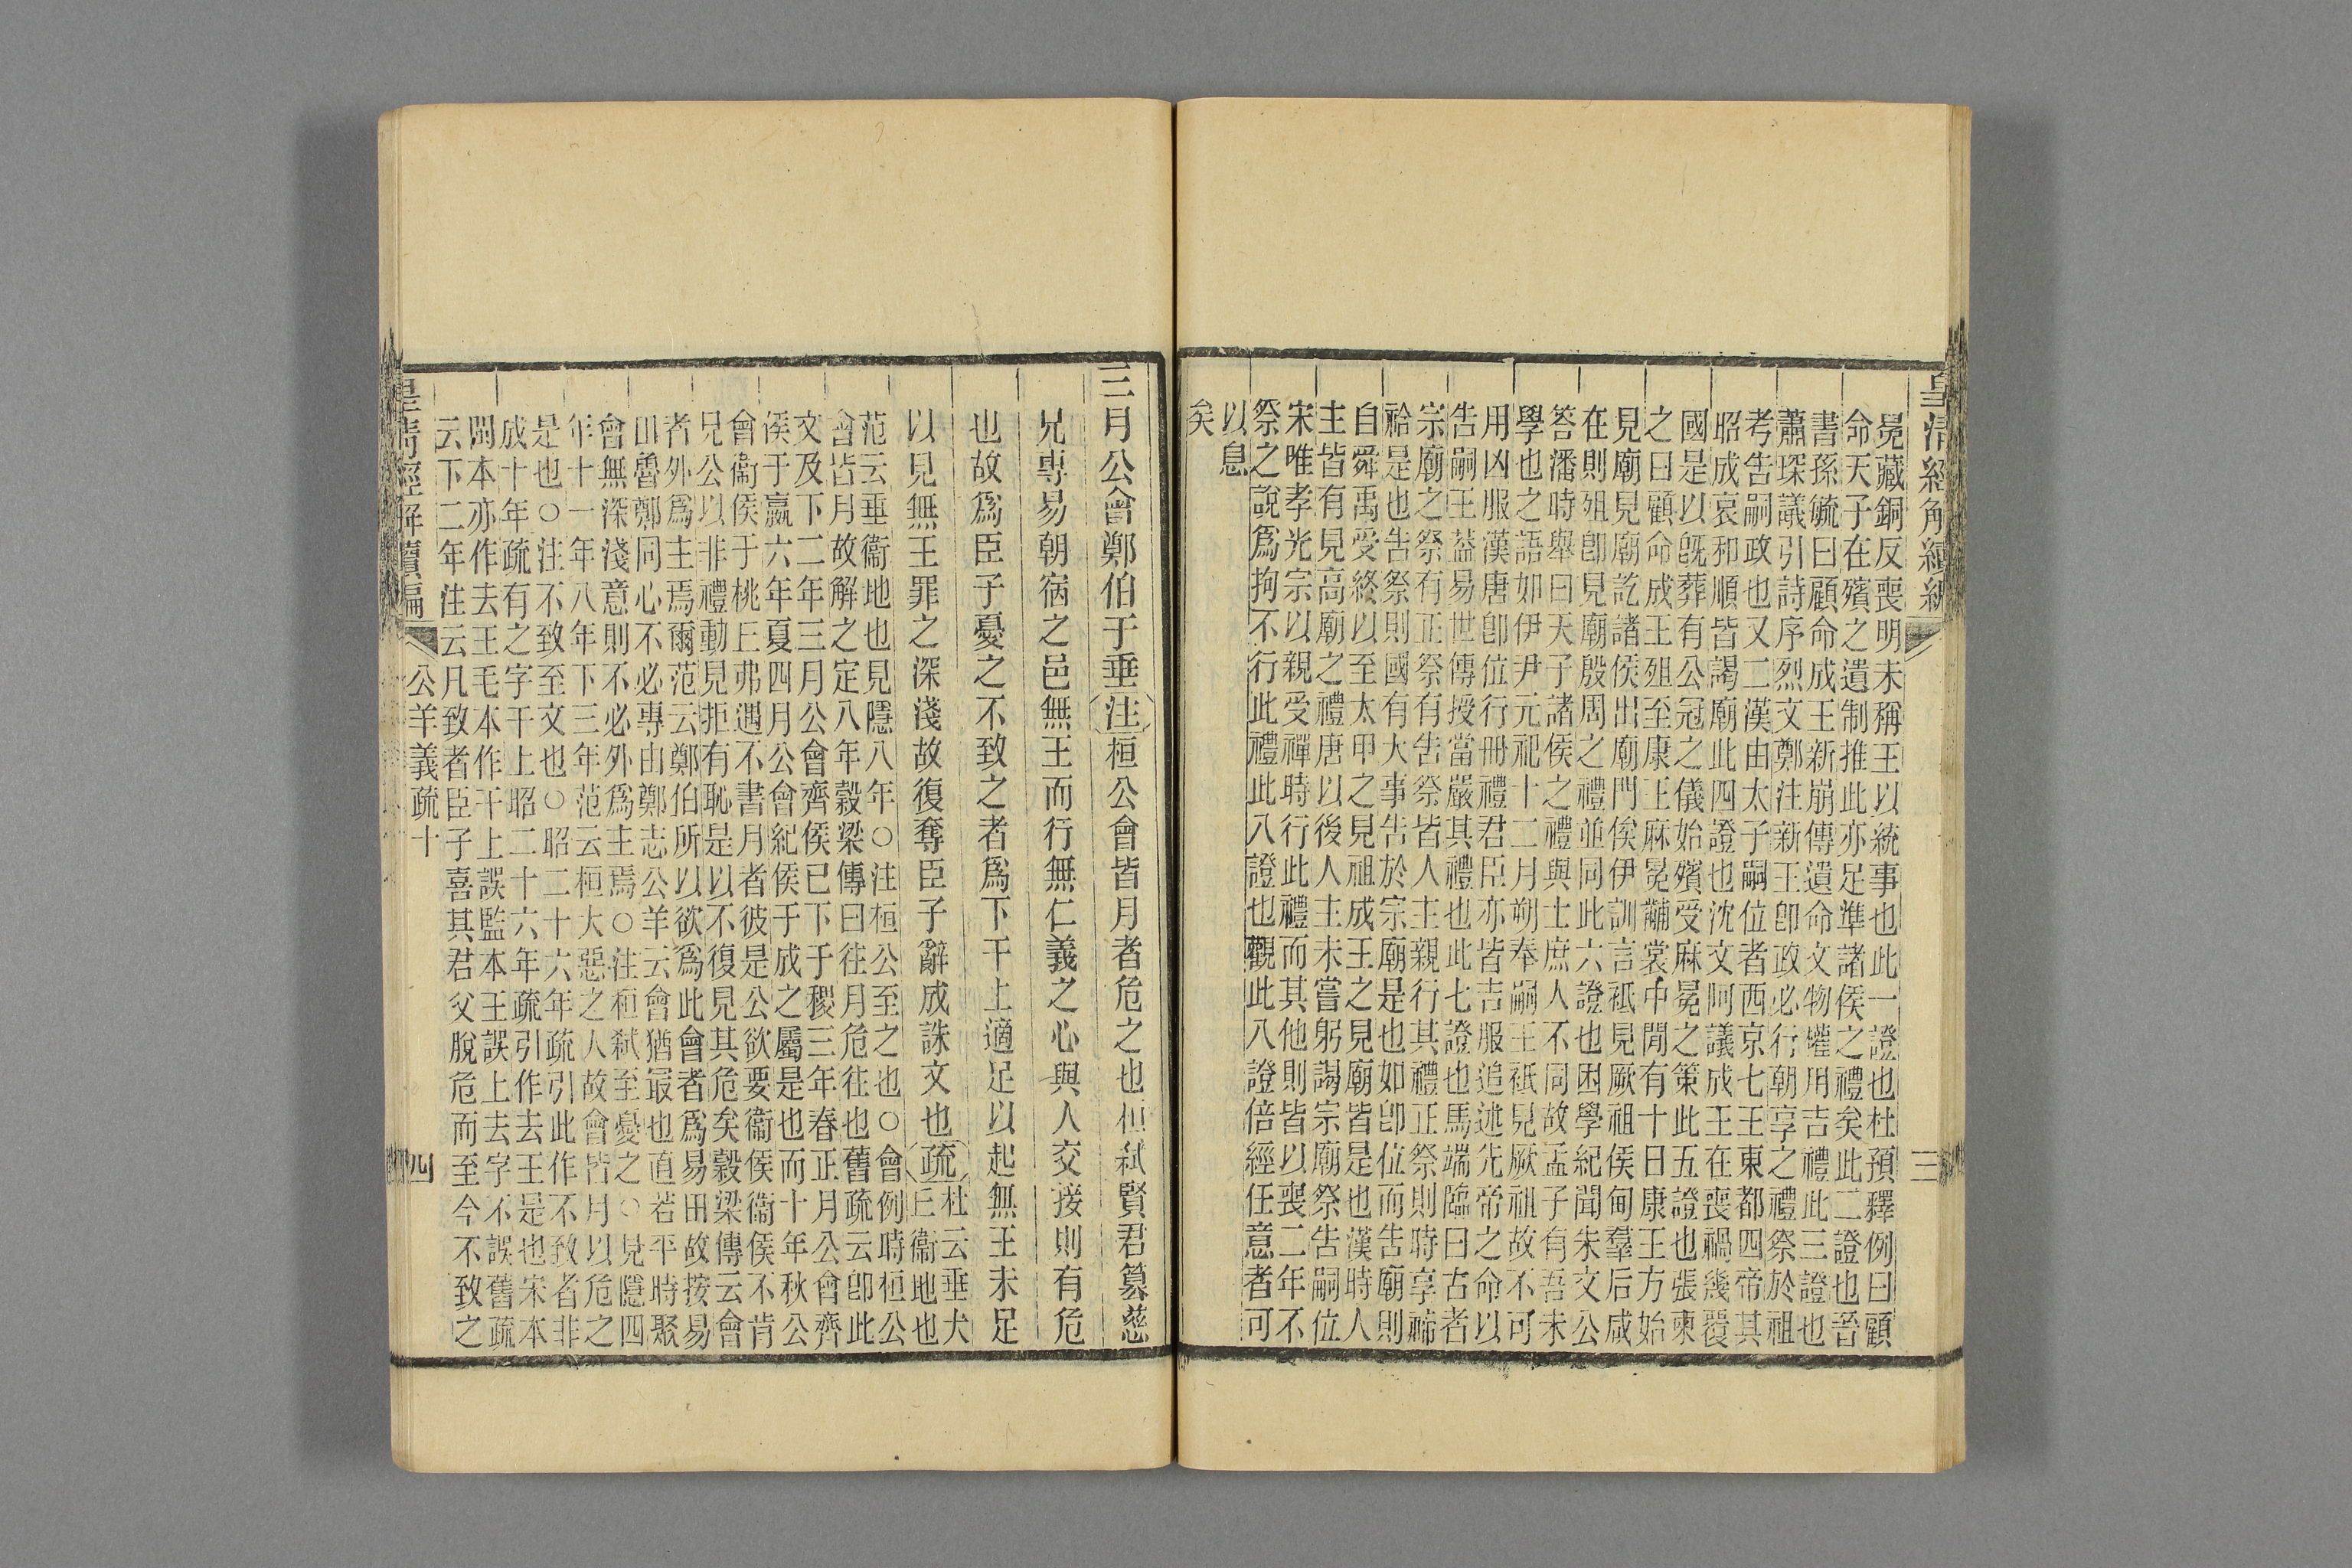 皇清經解續編
三
冕藏銅反喪明未稱王以統事也此一證也杜預釋例曰顧
命天子在殯之遺制推此亦足準諸侯之禮矣此二證也晉
書孫毓曰顧命成王新崩傳遺命文物權用吉禮此三證也
蕭琛議引詩序烈文鄭注新王卽政必行朝享之禮祭於祖
考告嗣政也又二漢由太子嗣位者西京七王東都四帝其
昭成哀和順皆謁廟此四證也沈文阿議成王在喪禍幾覆
國是以旣葬有公冠之儀始殯受麻冕之策此五證也張柬
之曰顧命成王殂至康王麻冕黼裳中閒有十日康王方始
見廟見廟訖諸侯出廟門俟伊訓言祗見厥祖侯甸羣后咸
在則殂卽見廟殷周之禮並同此六證也困學紀聞朱文公
答潘時舉曰天子諸侯之禮與士庶人不同故孟子有吾未
學也之語如伊尹元祀十二月朔奉嗣王祗見厥祖故不可
用凶服漢唐卽位行冊禮君臣亦皆吉服追述先帝之命以
告嗣王葢易世傳授當嚴其禮也此七證也馬端臨曰古者
宗廟之祭有正祭有告祭皆人主親行其禮正祭則時享禘
祫是也告祭則國有大事告於宗廟是也如卽位而告廟則
自舜禹受終以至太甲之見祖成王之見廟皆是也漢時人
主皆有見高廟之禮唐以後人主未嘗躬謁宗廟祭告嗣位
宋唯孝光宗以親受禪時行此禮而其他則皆以喪二年不
祭之說爲拘不行此禮此八證也觀此八證倍經任意者可
以息
矣
三月公會鄭伯于垂注桓公會皆月者危之也桓弒賢君篡慈
兄專易朝宿之邑無王而行無仁義之心與人交接則有危
也故爲臣子憂之不致之者爲下干上適足以起無王未足
以見無王罪之深淺故復奪臣子辭成誅文也疏杜云垂犬
丘衞地也
范云垂衞地也見隱八年○注桓公至之也○會例時桓公
會皆月故解之定八年穀梁傳曰往月危往也舊疏云卽此
文及下二年三月公會齊侯已下于稷三年春正月公會齊
侯于嬴六年夏四月公會紀侯于成之屬是也而十年秋公
會衞侯于桃丘弗遇不書月者彼是公欲要衞侯衞侯不肯
見公以非禮動見拒有恥是以不復見其危矣穀梁傳云會
者外爲主焉爾范云鄭伯所以欲爲此會者爲易田故按易
田魯鄭同心不必專由鄭志公羊云會猶冣也直若平時聚
會無深淺意則不必外爲主焉○注桓弒至憂之○見隱四
年十一年八年下三年范云桓大惡之人故會皆月以危之
是也○注不致至文也○昭二十六年疏引此作不致者非
成十年疏有之字干上昭二十六年疏引作去王是也宋本
閩本亦作去王毛本作干上誤監本王誤上去字不誤舊疏
云下二年注云凡致者臣子喜其君父脫危而至今不致之
皇清經解續編
公羊義疏十
四